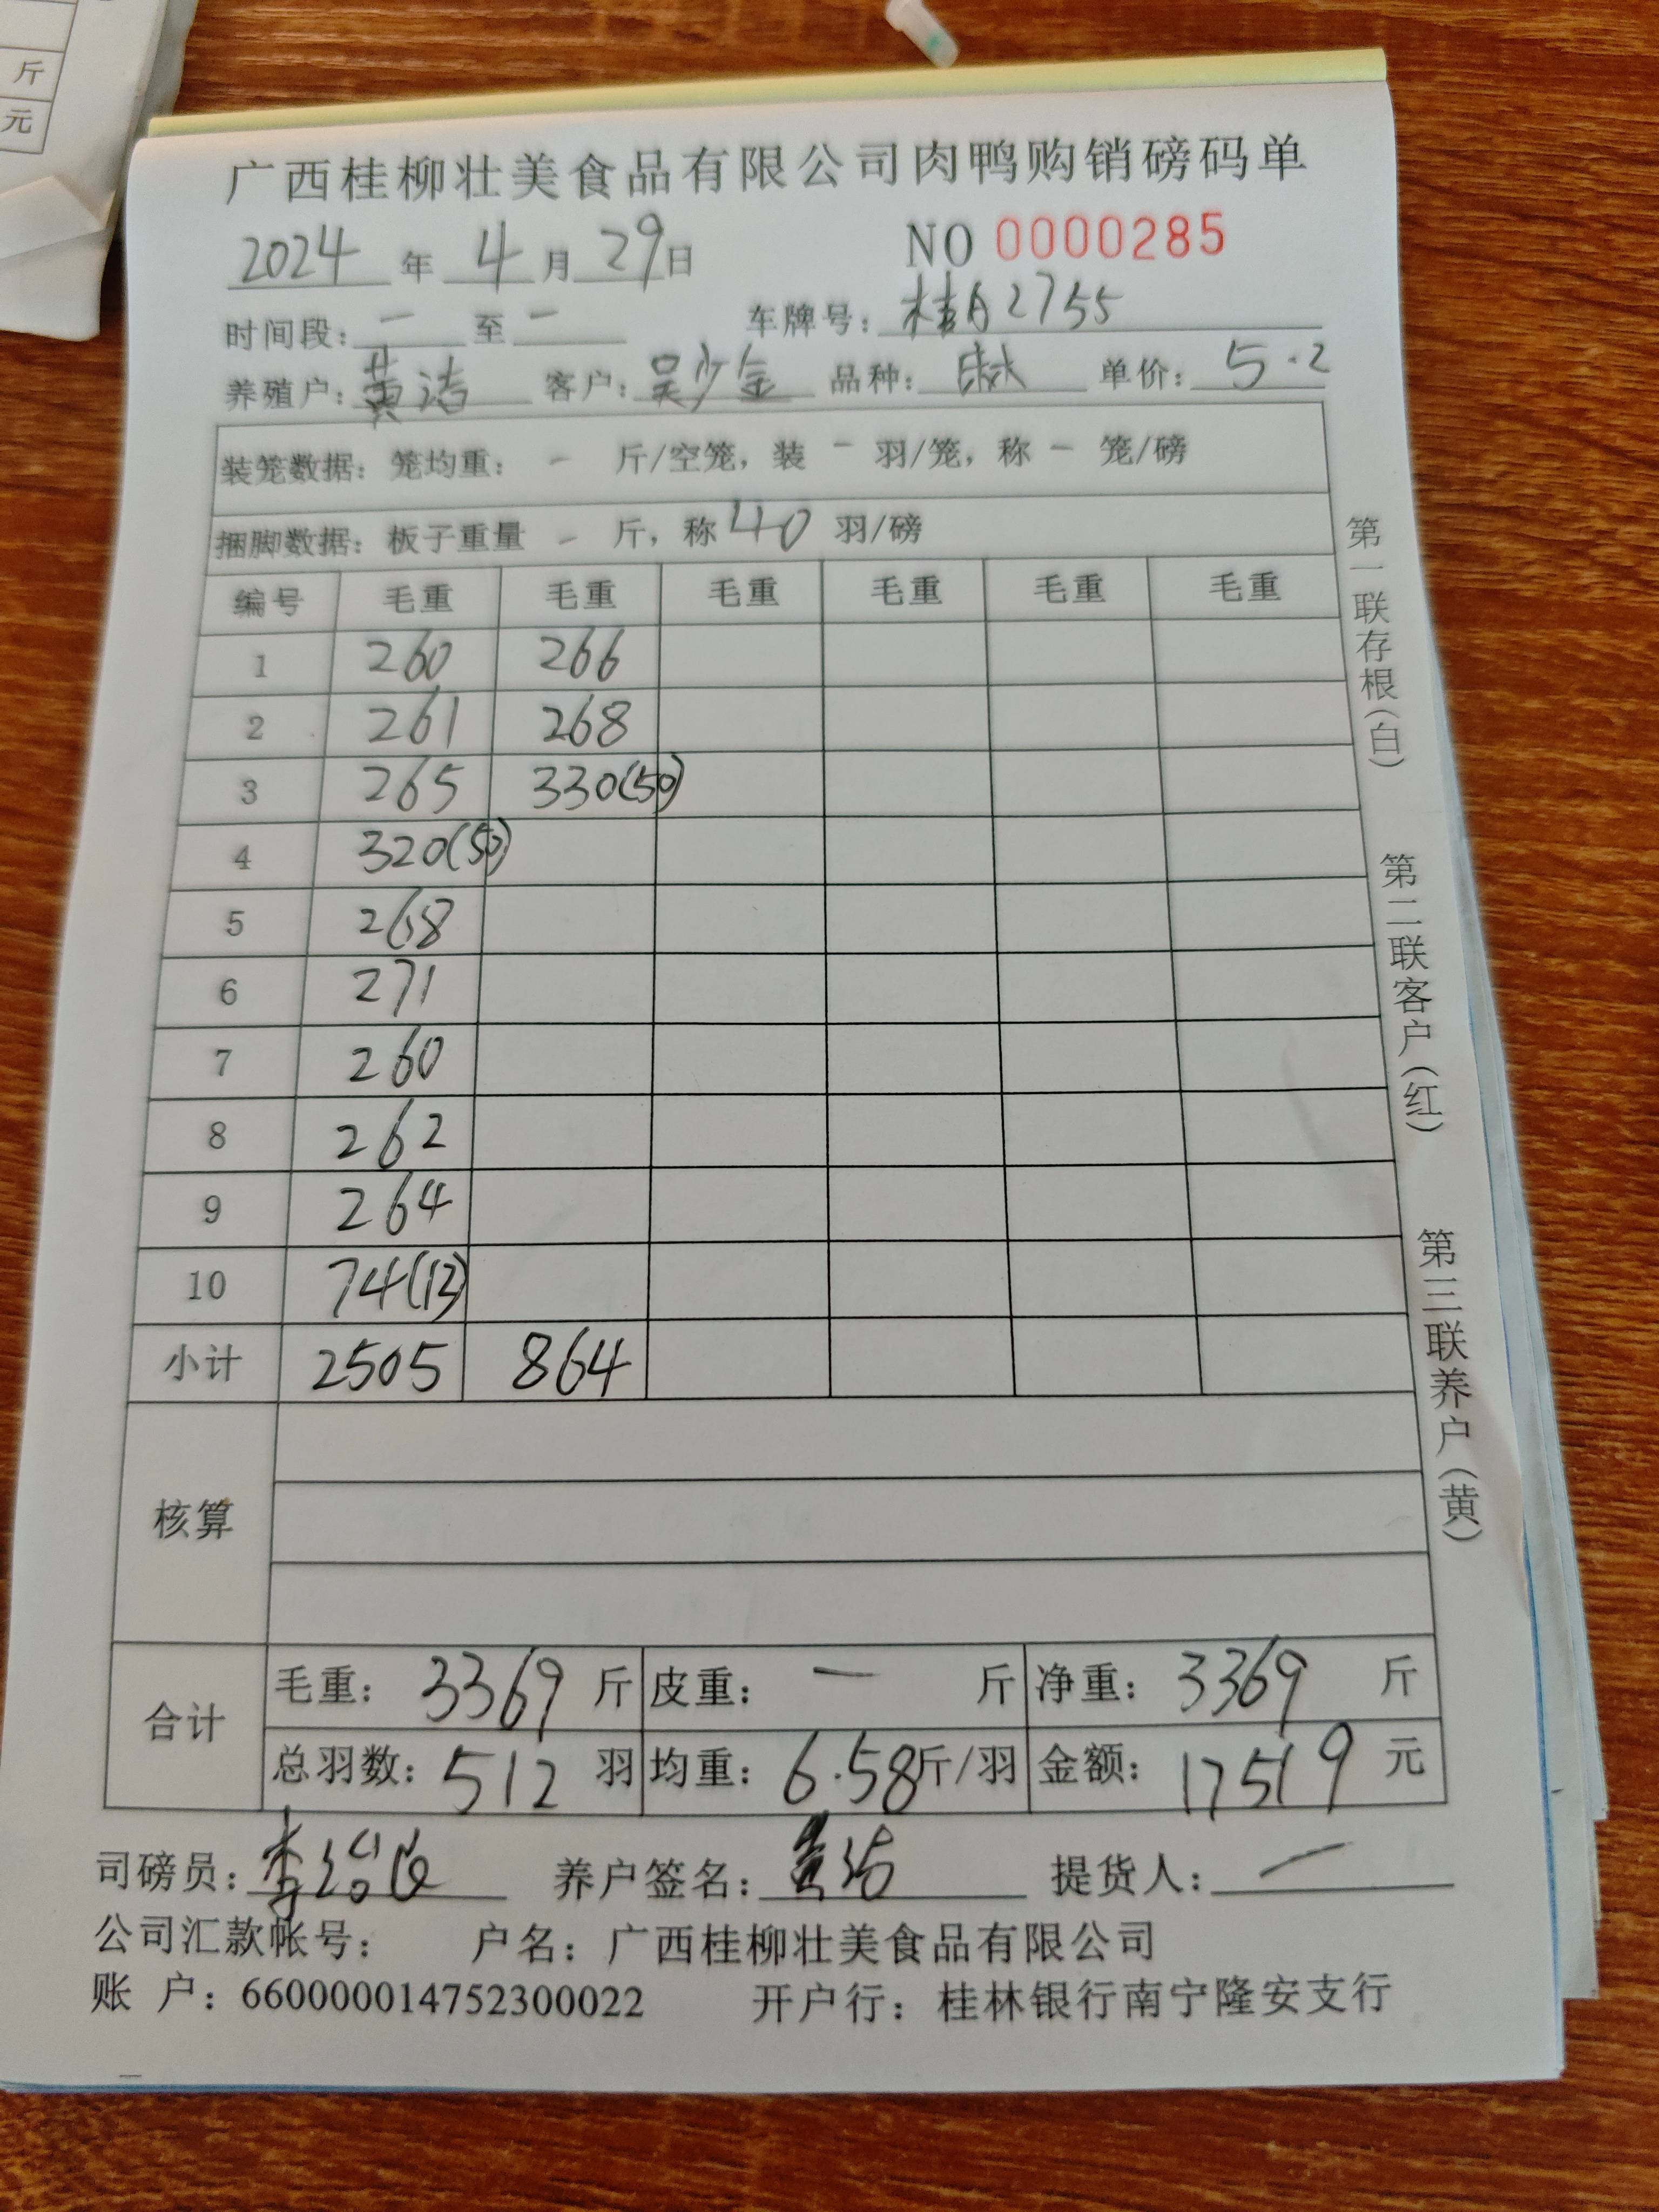 斤
元
广西桂柳壮美食品有限公司肉鸭购销磅码单
2024 年 4 月 29 日 NO 0000285
时间段: 一 至 一 车牌号: 桂A2755
养殖户: 黄洁 客户: 吴少金 品种: 单价: 5.2
装笼数据: 笼均重: - 斤/空笼, 装 - 羽/笼, 称 - 笼/磅
捆脚数据: 板子重量 - 斤, 称 40 羽/磅
编号 毛重 毛重 毛重 毛重 毛重 毛重
1 260 266
2 261 268
3 265 330(50)
4 320(50)
5 268
6 271
7 260
8 262
9 264
10 74(12)
小计 2505 864
核算
合计 毛重: 3369 斤 皮重: 一 斤 净重: 3369 斤
总羽数: 512 羽 均重: 6.58 斤/羽 金额: 17519 元
司磅员: 养户签名: 黄洁 提货人: 一
公司汇款帐号: 户名: 广西桂柳壮美食品有限公司
账 户: 660000014752300022 开户行: 桂林银行南宁隆安支行
第一联存根(白)
第二联客户(红)
第三联养户(黄)